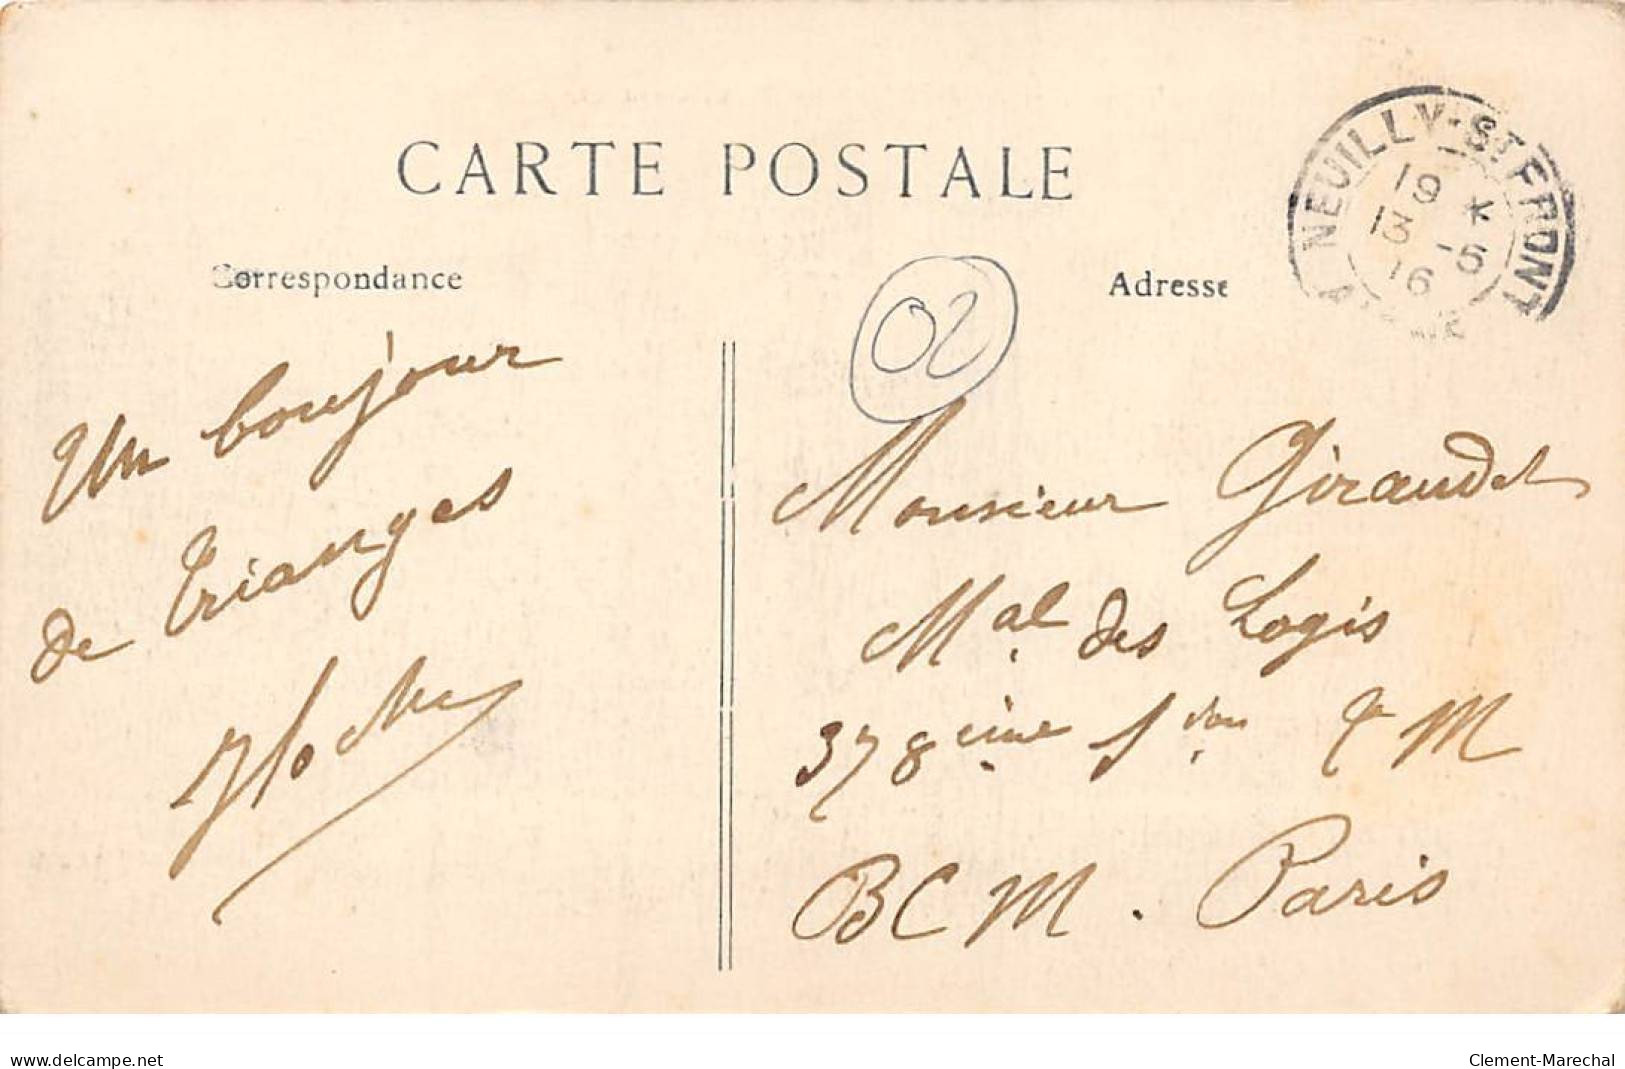 CARTE POSTALE
Correspondance
Adresse
NEUILLY-ST FRONT
19 *
13 -5
16
02
Un bonjour
de Triangges
Monsieur Giraudet
Mal. des Logis
378ème Son T M
BCM. Paris
www.delcampe.net
Clement-Marechal